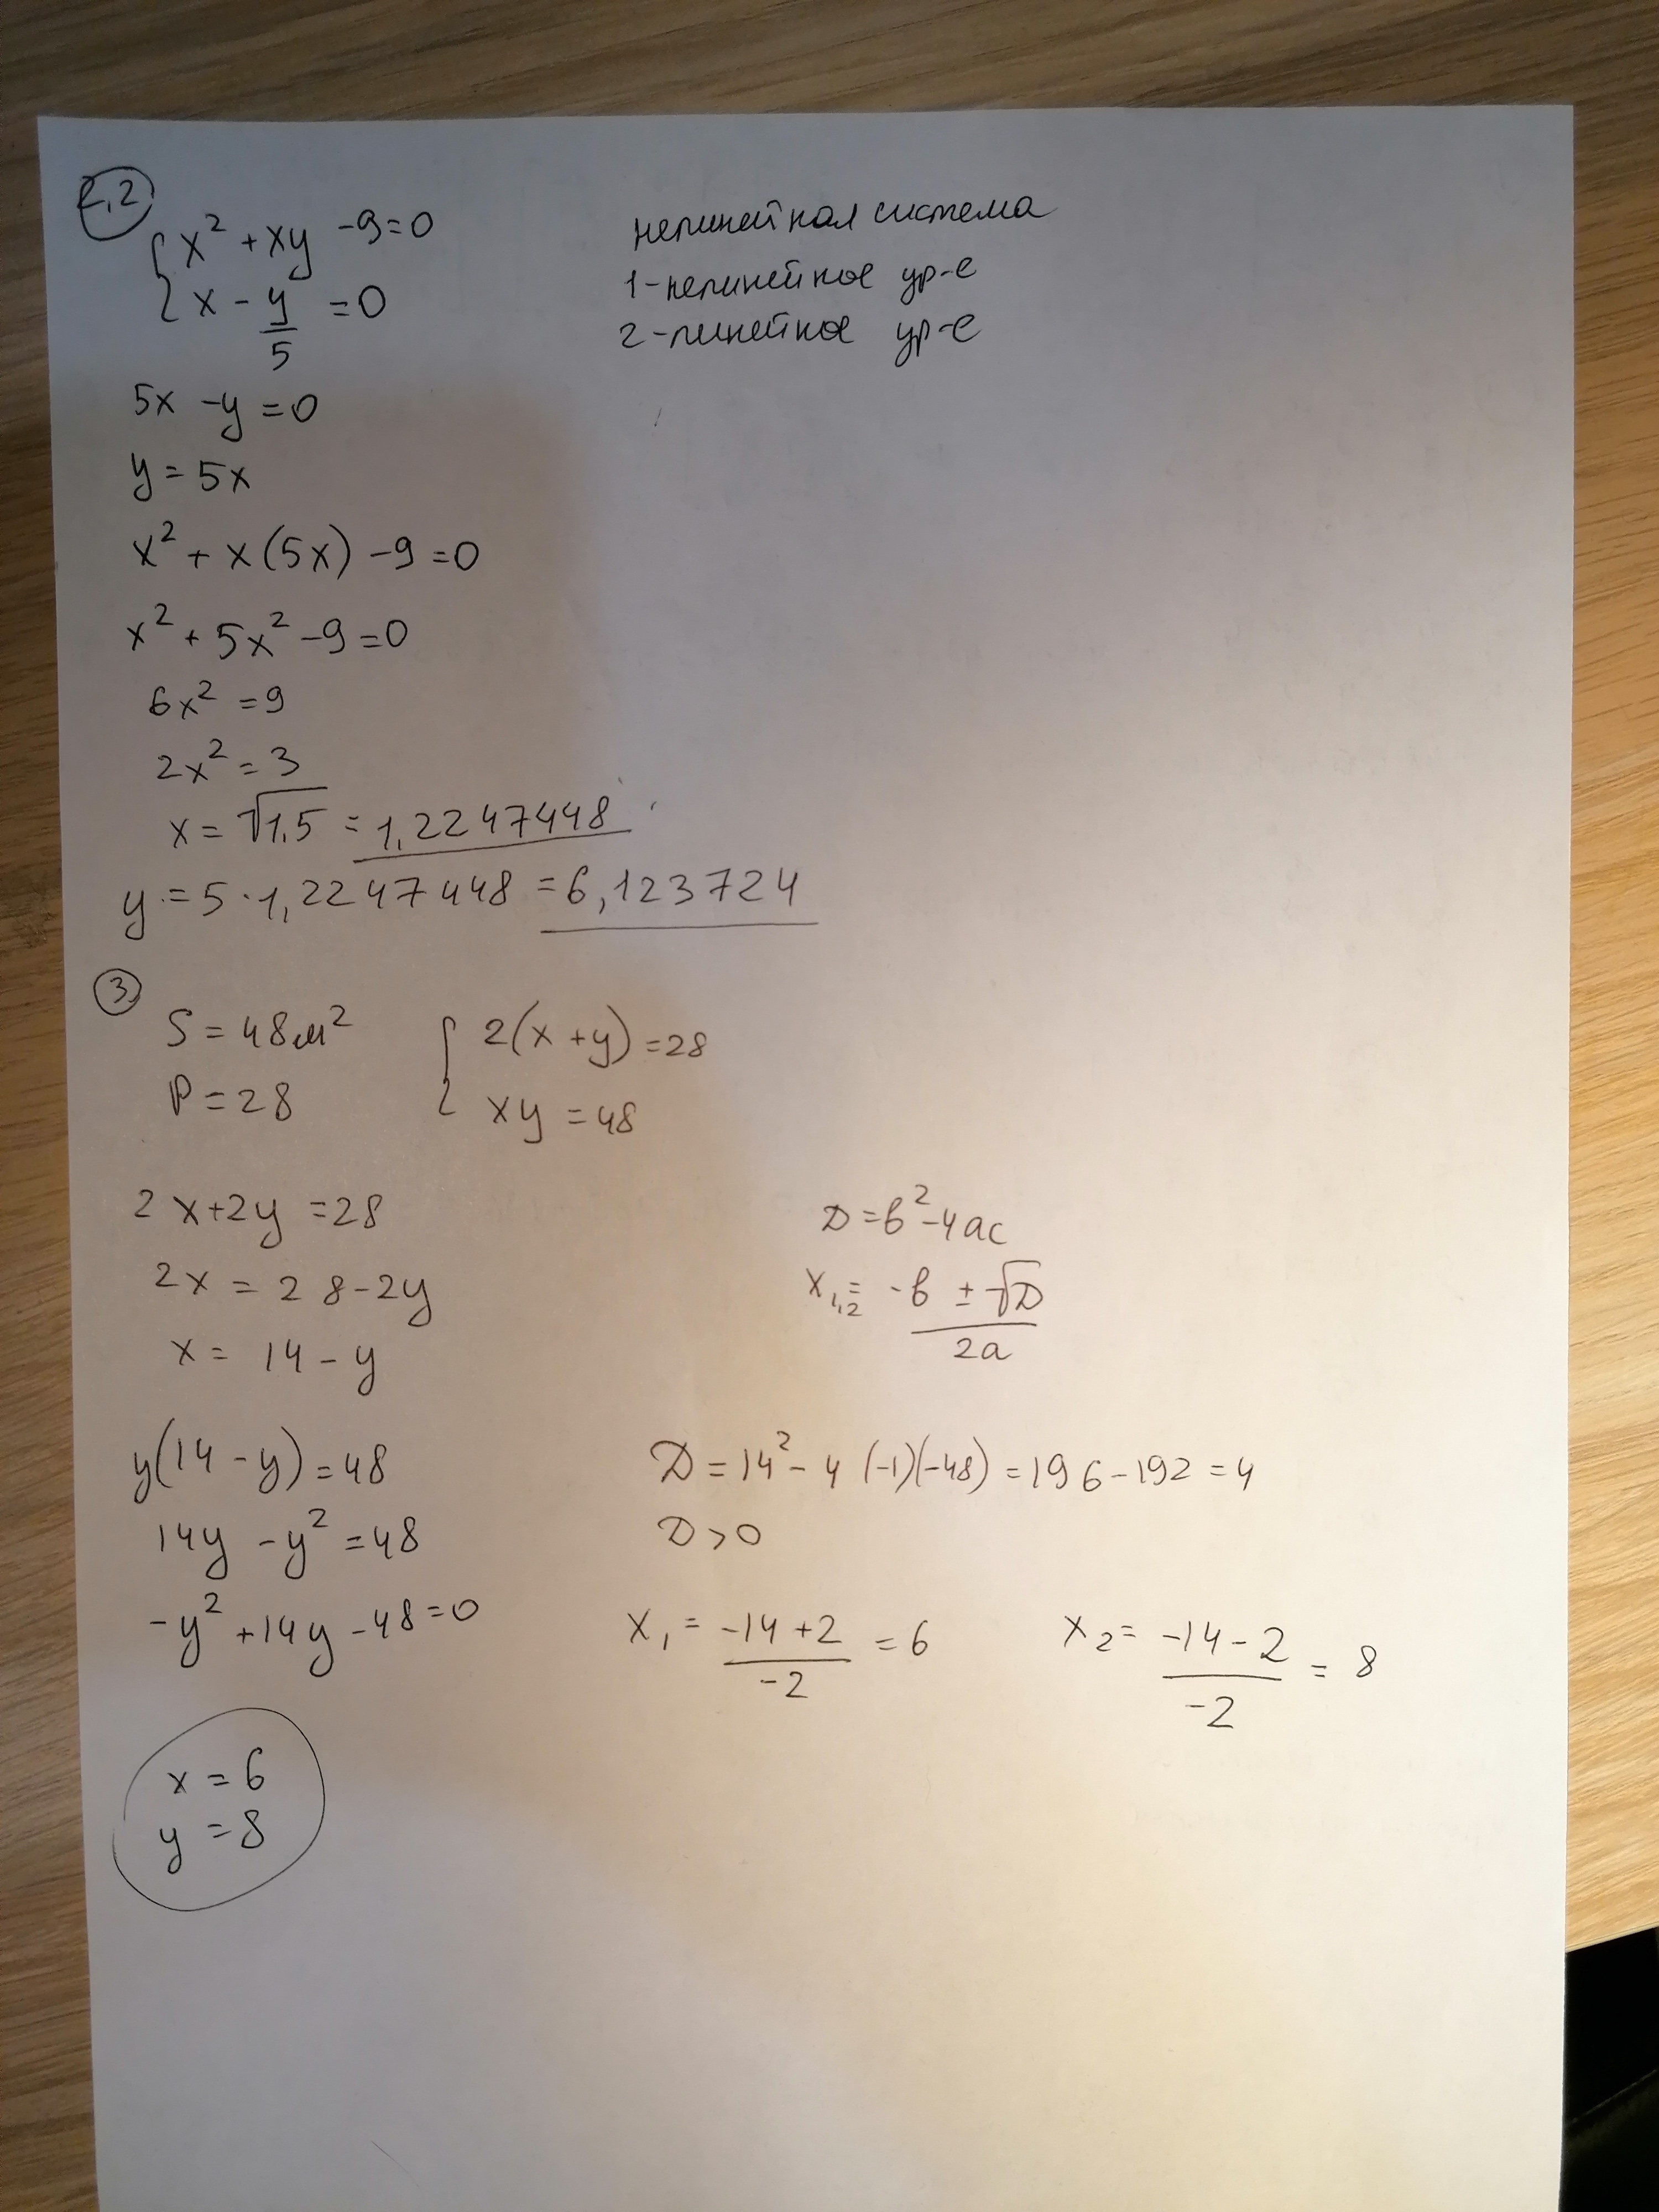 2,2
{ x² + xy - 9 = 0
{ x - y/5 = 0
нелинейная система
1-нелинейное ур-е
2-линейное ур-е
5x - y = 0
y = 5x
x² + x(5x) - 9 = 0
x² + 5x² - 9 = 0
6x² = 9
2x² = 3
x = √1,5 = 1,2247448
y = 5 · 1,2247448 = 6,123724
3
S = 48м²
P = 28
{ 2(x + y) = 28
{ xy = 48
2x + 2y = 28
2x = 28 - 2y
x = 14 - y
y(14 - y) = 48
14y - y² = 48
-y² + 14y - 48 = 0
D = b² - 4ac
x₁,₂ = (-b ± √D)/2a
D = 14² - 4(-1)(-48) = 196 - 192 = 4
D > 0
x₁ = (-14 + 2)/-2 = 6
x₂ = (-14 - 2)/-2 = 8
x = 6
y = 8